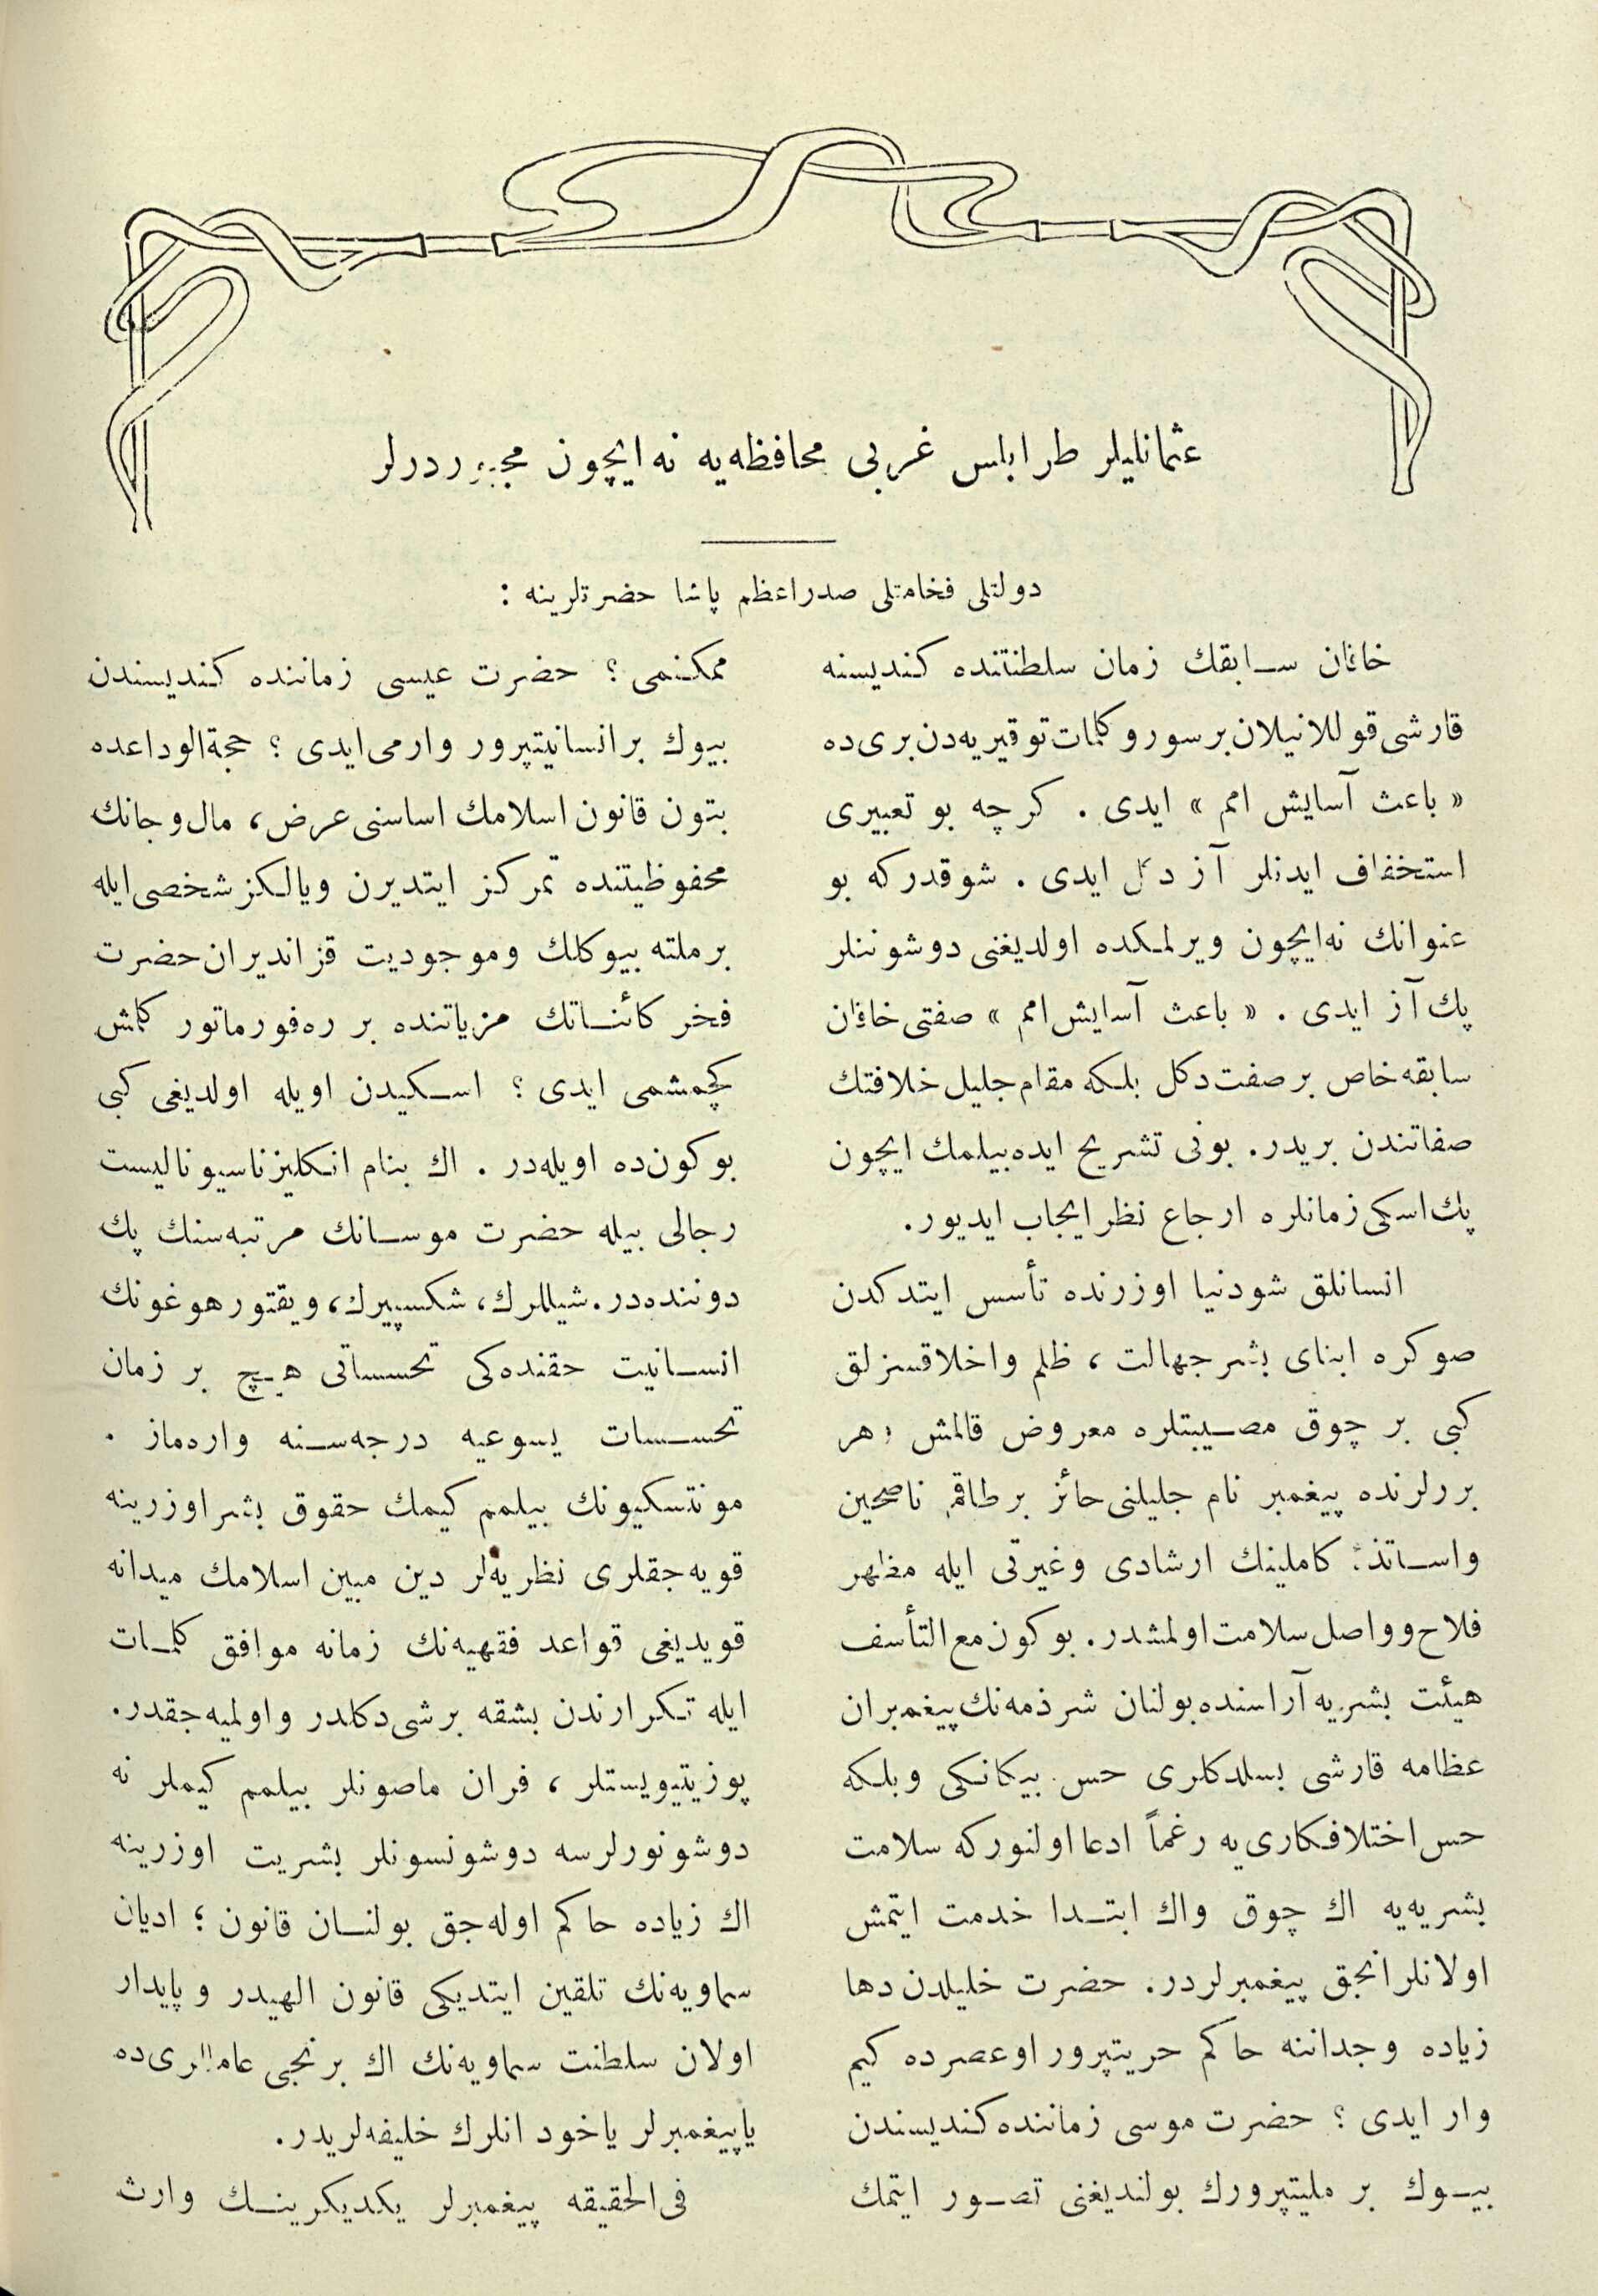 عثمانلیلر طرابلس غربی محافظه‌یه نه ایچون مجبوردرلر
دولتلی فخامتلی صدراعظم پاشا حضرتلرینه :
خاقان سابقك زمان سلطنتنده كندیسنه
قارشی قوللانیلان برسورو كلمات توقیریه‌دن بری ده
« باعث آسایش امم » ایدی . كرچه بو تعبیری
استخفاف ایدنلر آز دكل ایدی . شوقدركه بو
عنوانك نه‌ایچون ویرلمكده اولدیغنی دوشوننلر
پك آز ایدی . « باعث آسایش امم » صفتی خاقان
سابقه خاص برصفت دكل بلكه مقام جلیل خلافتك
صفاتندن بریدر. بونی تشریح ایده‌بیلمك ایچون
پك اسكی زمانلره ارجاع نظر ایجاب ایدیور.
انسانلق شودنیا اوزرنده تأسس ایتدكدن
صوكره ابنای بشر جهالت ، ظلم واخلاقسزلق
كبی بر چوق مصیبتلره معروض قالمش ؛ هر
بررلرنده پیغمبر نام جلیلنی حائز برطاقم ناصحین
واساتذۀ كاملینك ارشادی وغیرتی ایله مظهر
فلاح وواصل سلامت اولمشدر. بوكون مع‌التأسف
هیئت بشریه آراسنده بولنان شرذمه‌نك پیغمبران
عظامه قارشی بسلدكلری حس بیكانكی وبلكه
حس اختلافكاری‌یه رغماً ادعا اولنوركه سلامت
بشریه‌یه اك چوق واك ابتدا خدمت ایتمش
اولانلر انجق پیغمبرلردر. حضرت خلیلدن دها
زیاده وجداننه حاكم حریتپرور اوعصرده كیم
وار ایدی ؟ حضرت موسی زماننده كندیسندن
بیوك بر ملیتپرورك بولندیغنی تصور ایتمك
ممكنمی ؟ حضرت عیسی زماننده كندیسندن
بیوك برانسانیتپرور وارمی ایدی ؟ حجة‌الوداعده
بتون قانون اسلامك اساسنی عرض، مال وجانك
محفوظیتنده تمركز ایتدیرن ویالكز شخصی ایله
برملته بیوكلك وموجودیت قزاندیران حضرت
فخر كائناتك مزیاتنده بر ره‌فورماتور كلمش
كچمشمی ایدی ؟ اسكیدن اویله اولدیغی كبی
بوكون ده اویله‌در . اك بنام انكلیز ناسیونالیست
رجالی بیله حضرت موسانك مرتبه‌سنك پك
دوننده‌در. شیللرك، شكسپیرك، ویقتور هوغونك
انسانیت حقنده‌كی تحسساتی هیچ بر زمان
تحسسات یسوعیه درجه‌سنه واره‌ماز .
مونتسكیونك بیلمم كیمك حقوق بشر اوزرینه
قویه‌جقلری نظریه‌لر دین مبین اسلامك میدانه
قویدیغی قواعد فقهیه‌نك زمانه موافق كلمات
ایله تكرارندن بشقه برشی دكلدر واولمیه‌جقدر.
پوزیتیویستلر ، فران ماصونلر بیلمم كیملر نه
دوشونورلرسه دوشونسونلر بشریت اوزرینه
اك زیاده حاكم اوله‌جق بولنان قانون ؛ ادیان
سماویه‌نك تلقین ایتدیكی قانون الهیدر وپایدار
اولان سلطنت سماویه‌نك اك برنجی عامللری ده
یا پیغمبرلر یاخود انلرك خلیفه‌لریدر.
فی‌الحقیقه پیغمبرلر یكدیكرینك وارث